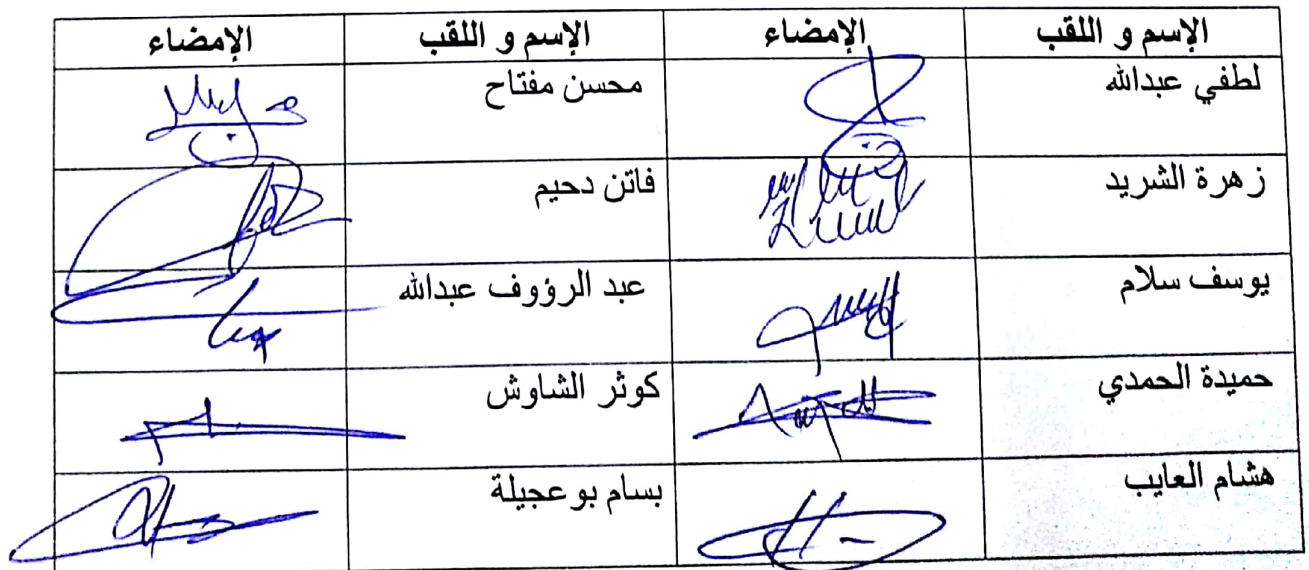 الإسم و اللقب الإمضاء الإسم و اللقب الإمضاء
لطفي عبدالله محسن مفتاح
زهرة الشريد فاتن دحيم
يوسف سلام عبد الرؤوف عبدالله
حميدة الحمدي كوثر الشاوش
هشام العايب بسام بوعجيلة